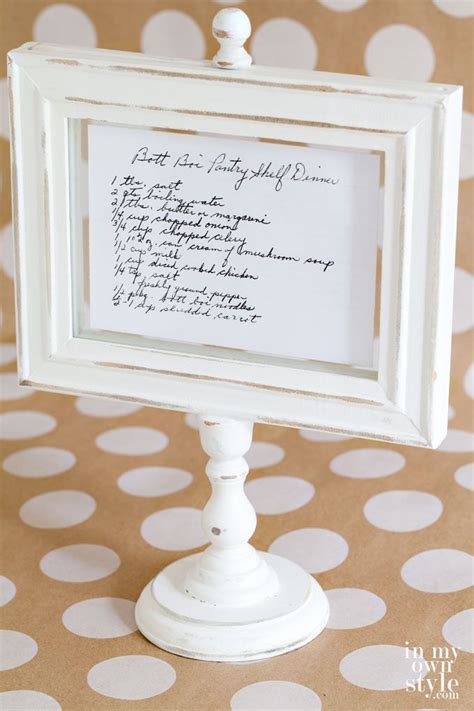 Bott Boi Pantry Shelf Dinner
1 tbs. salt
2 qts boiling water
2 tbs. butter or margarine
1/4 cup chopped onion
3/4 cup chopped celery
1 10 1/2 oz. can cream of mushroom soup
1/2 cup milk
1 cup diced cooked chicken
1/4 tsp. salt
freshly ground pepper
1/2 pkg. bott boi noodles
cup shredded carrot
in my
own
style
.com